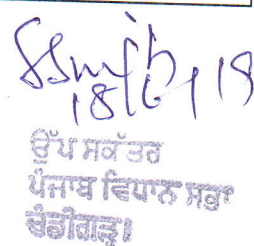 18/6/19
ਉੱਪ ਸਕੱਤਰ
ਪੰਜਾਬ ਵਿਧਾਨ ਸਭਾ
ਚੰਡੀਗੜ੍ਹ।